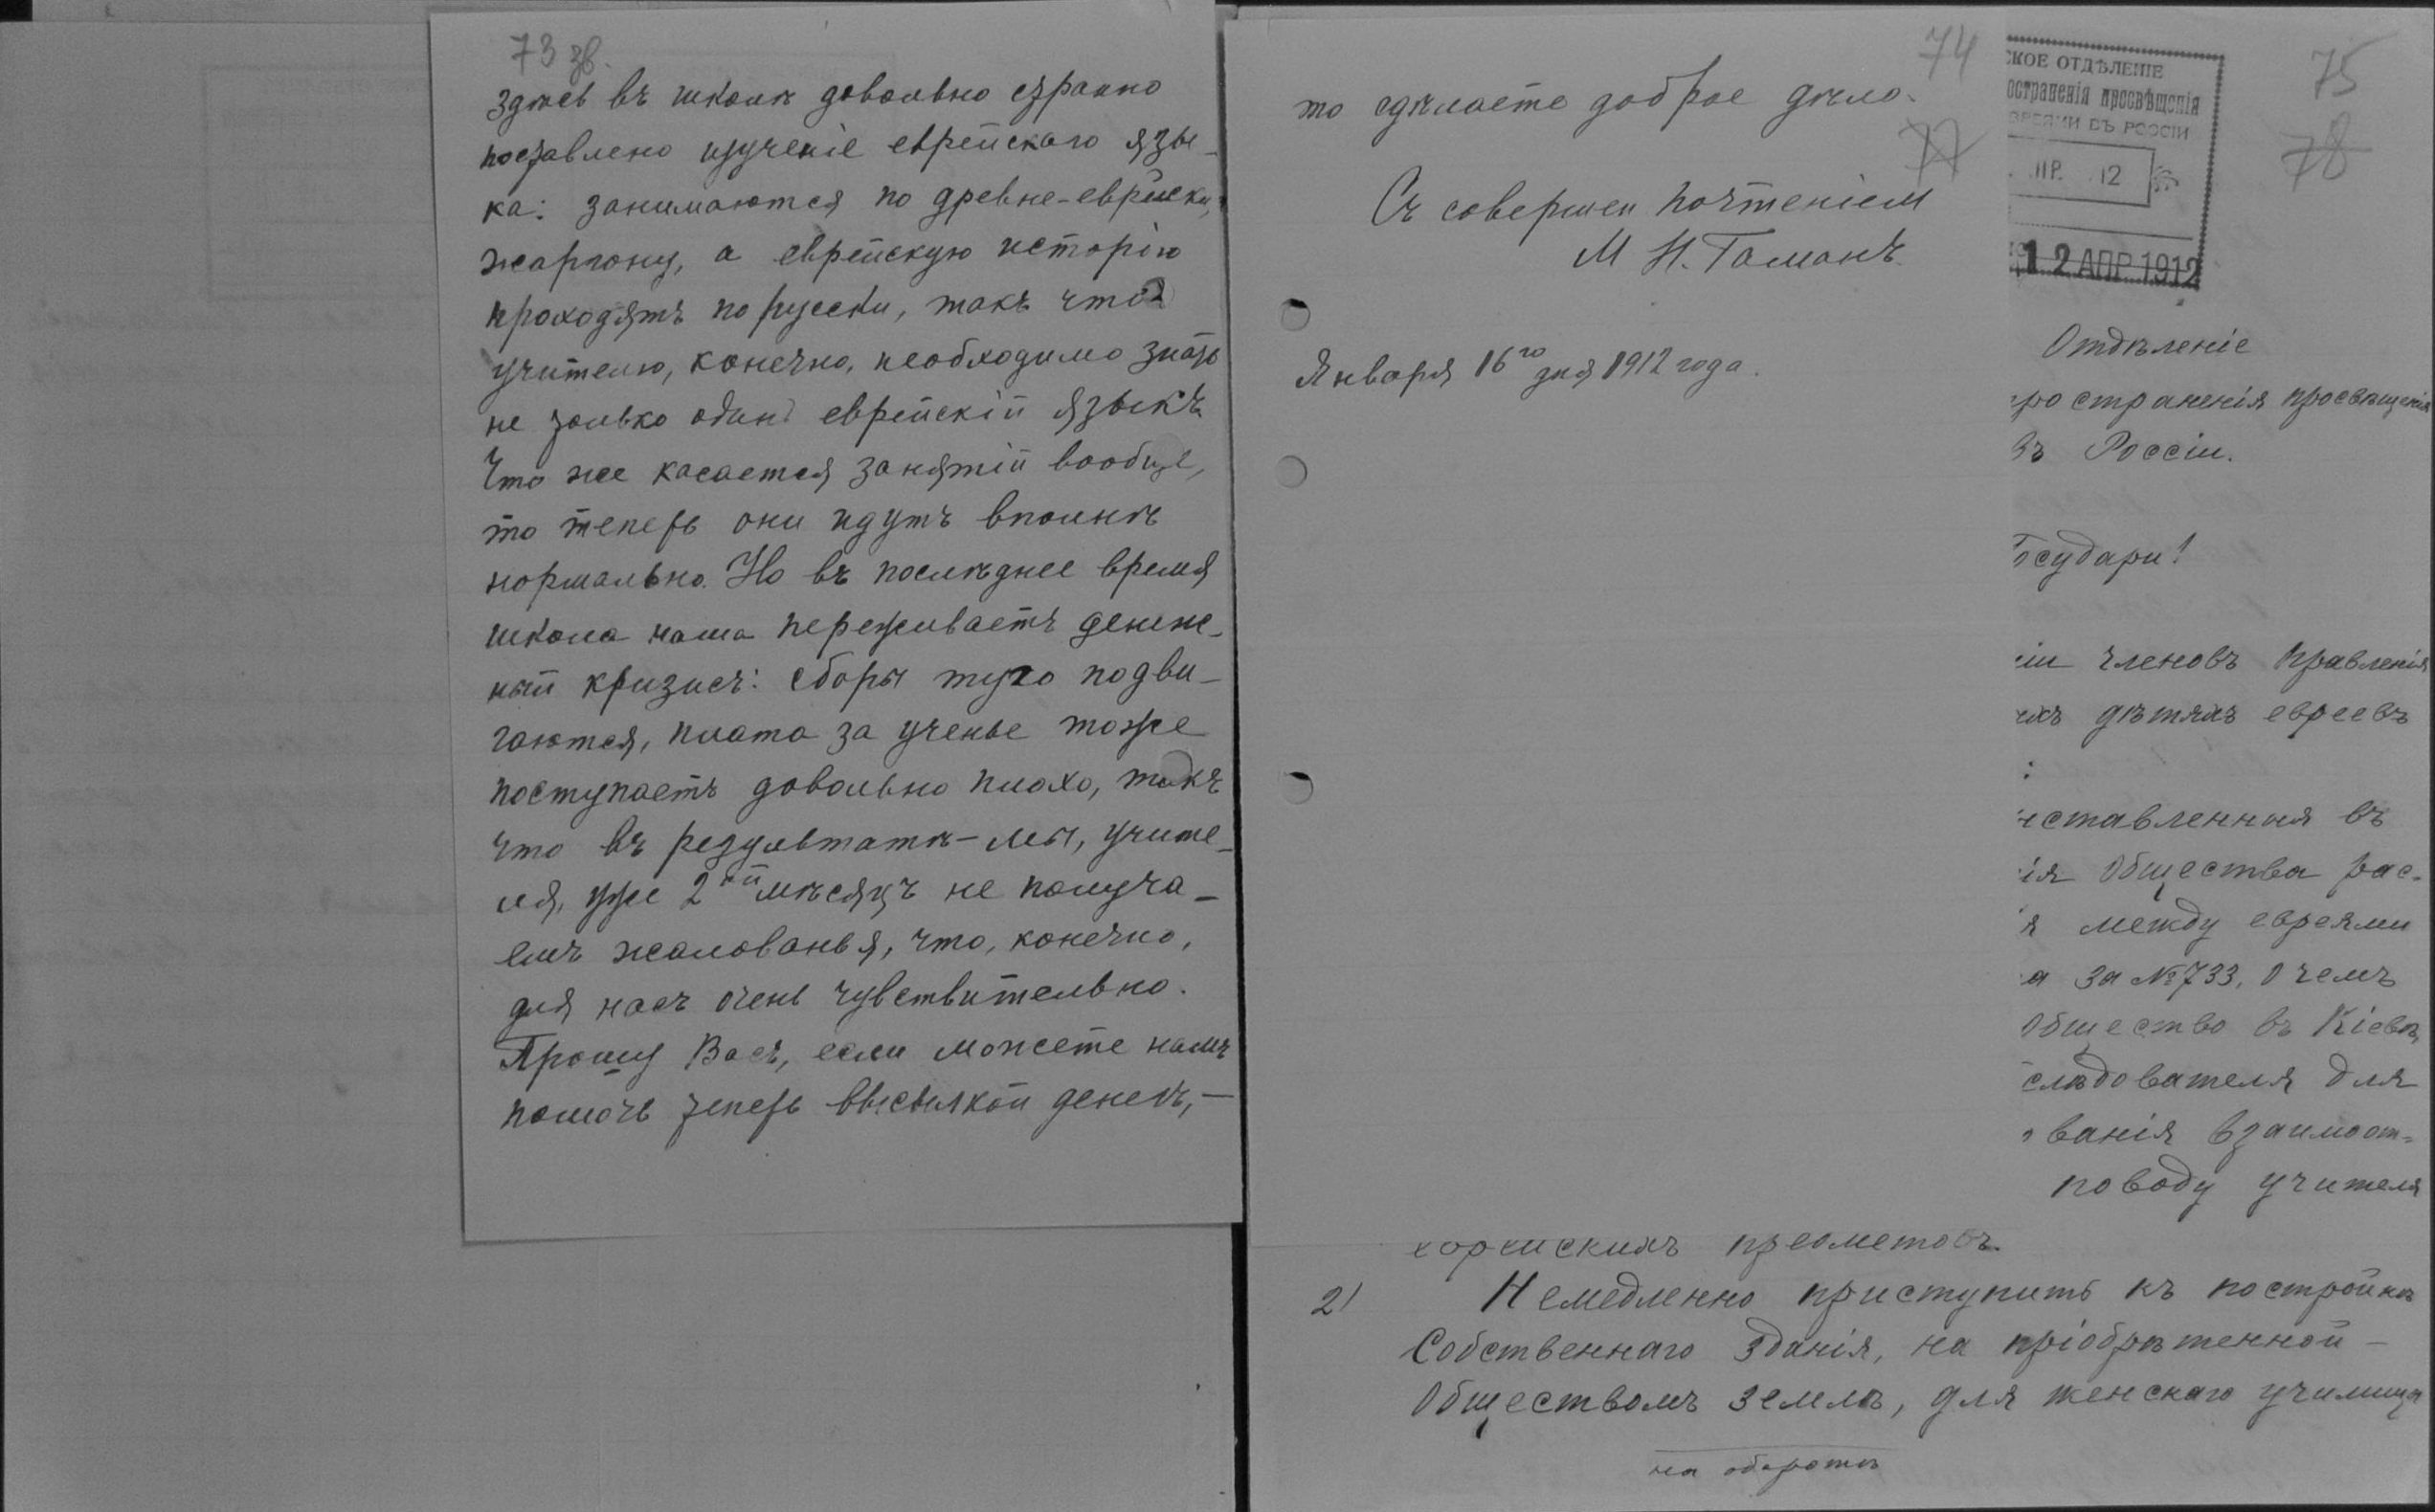 73 зв.
здѣсь въ школѣ довольно странно
поставлено изученіе еврейскаго язы-
ка: занимаются по древне-еврейски,
жаргону, а еврейскую исторію
проходятъ по русски, такъ что
учителю, конечно, необходимо знать
не только одинъ еврейскій языкъ
Что же касается занятій вообще,
то теперь они идутъ вполнѣ
нормально. Но въ послѣднее время
школа наша переживаетъ денеж-
ный кризисъ: сборы туго подви-
гаются, плата за ученье тоже
поступаетъ довольно плохо, такъ
что въ результатѣ – мы, учите-
ля, уже 2ой мѣсяцъ не получа-
емъ жалованья, что, конечно,
для насъ очень чувствительно.
Прошу Васъ, если можете намъ
помочь теперь высылкой денегъ, —
74
то сдѣлаете доброе дѣло.
77
Съ совершен почтеніем
М Н. Гаманъ.
Января 16го дня 1912 года.
СКОЕ ОТДѢЛЕНІЕ
остраненія просвѣщенія
ВРЕЯМИ ВЪ РОССІИ
12
12 АПР. 1912
75
78
Отдѣленіе
ространенія просвѣщенія
въ Россіи.
Государи!
іи членовъ Правленія
ихъ дѣтяхъ евреевъ
:
ставленная въ
ія Общества рас-
я между евреями
а за № 733, о чемъ
Общество въ Кіевѣ,
слѣдователя для
ванія взаимоот-
поводу учителя
еврейскихъ предметовъ.
2/ Немедленно приступить къ постройкѣ
Собственнаго зданія, на пріобрѣтенной –
Обществомъ землѣ, для женскаго училища
на оборотѣ